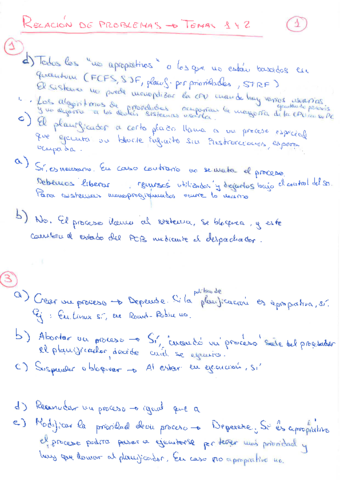 RELACIÓN DE PROBLEMAS → TEMAS 1 y 2
1
1
d) Todos los "no apropiativos" o los que no están basados en
quantum (FCFS, SJF, planif. por prioridades, STRF)
El sistema no puede monopolizar la CPU cuando hay varios usuarios
c. Los algoritmos de prioridades
y no
c) El planificador a corto plazo llama a un proceso especial
que ejecuta un bucle infinito sin instrucciones, espera
ocupada.
a) Sí, es necesario. En caso contrario no se mata el proceso.
Debemos liberar recursos utilizados y dejarlos bajo el control del SO.
Para sistemas monoprogramados ocurre lo mismo
b) No. El proceso llama al sistema, se bloquea, y este
cambia el estado del PCB mediante el despachador.
3
a) Crear un proceso → Depende. Si la política de planificación es apropiativa, sí.
Ej: En Linux sí, en Round-Robin no.
b) Abortar un proceso → Sí, cuando un proceso sale del procesador
el planificador decide cuál se ejecuta.
c) Suspender o bloquear → Al estar en ejecución, sí
d) Reanudar un proceso → igual que a
e) Modificar la prioridad de un proceso → Depende, Si es apropiativo
el proceso podría pasar a ejecutarse por tener más prioridad y
hay que llamar al planificador. En caso no apropiativo no.